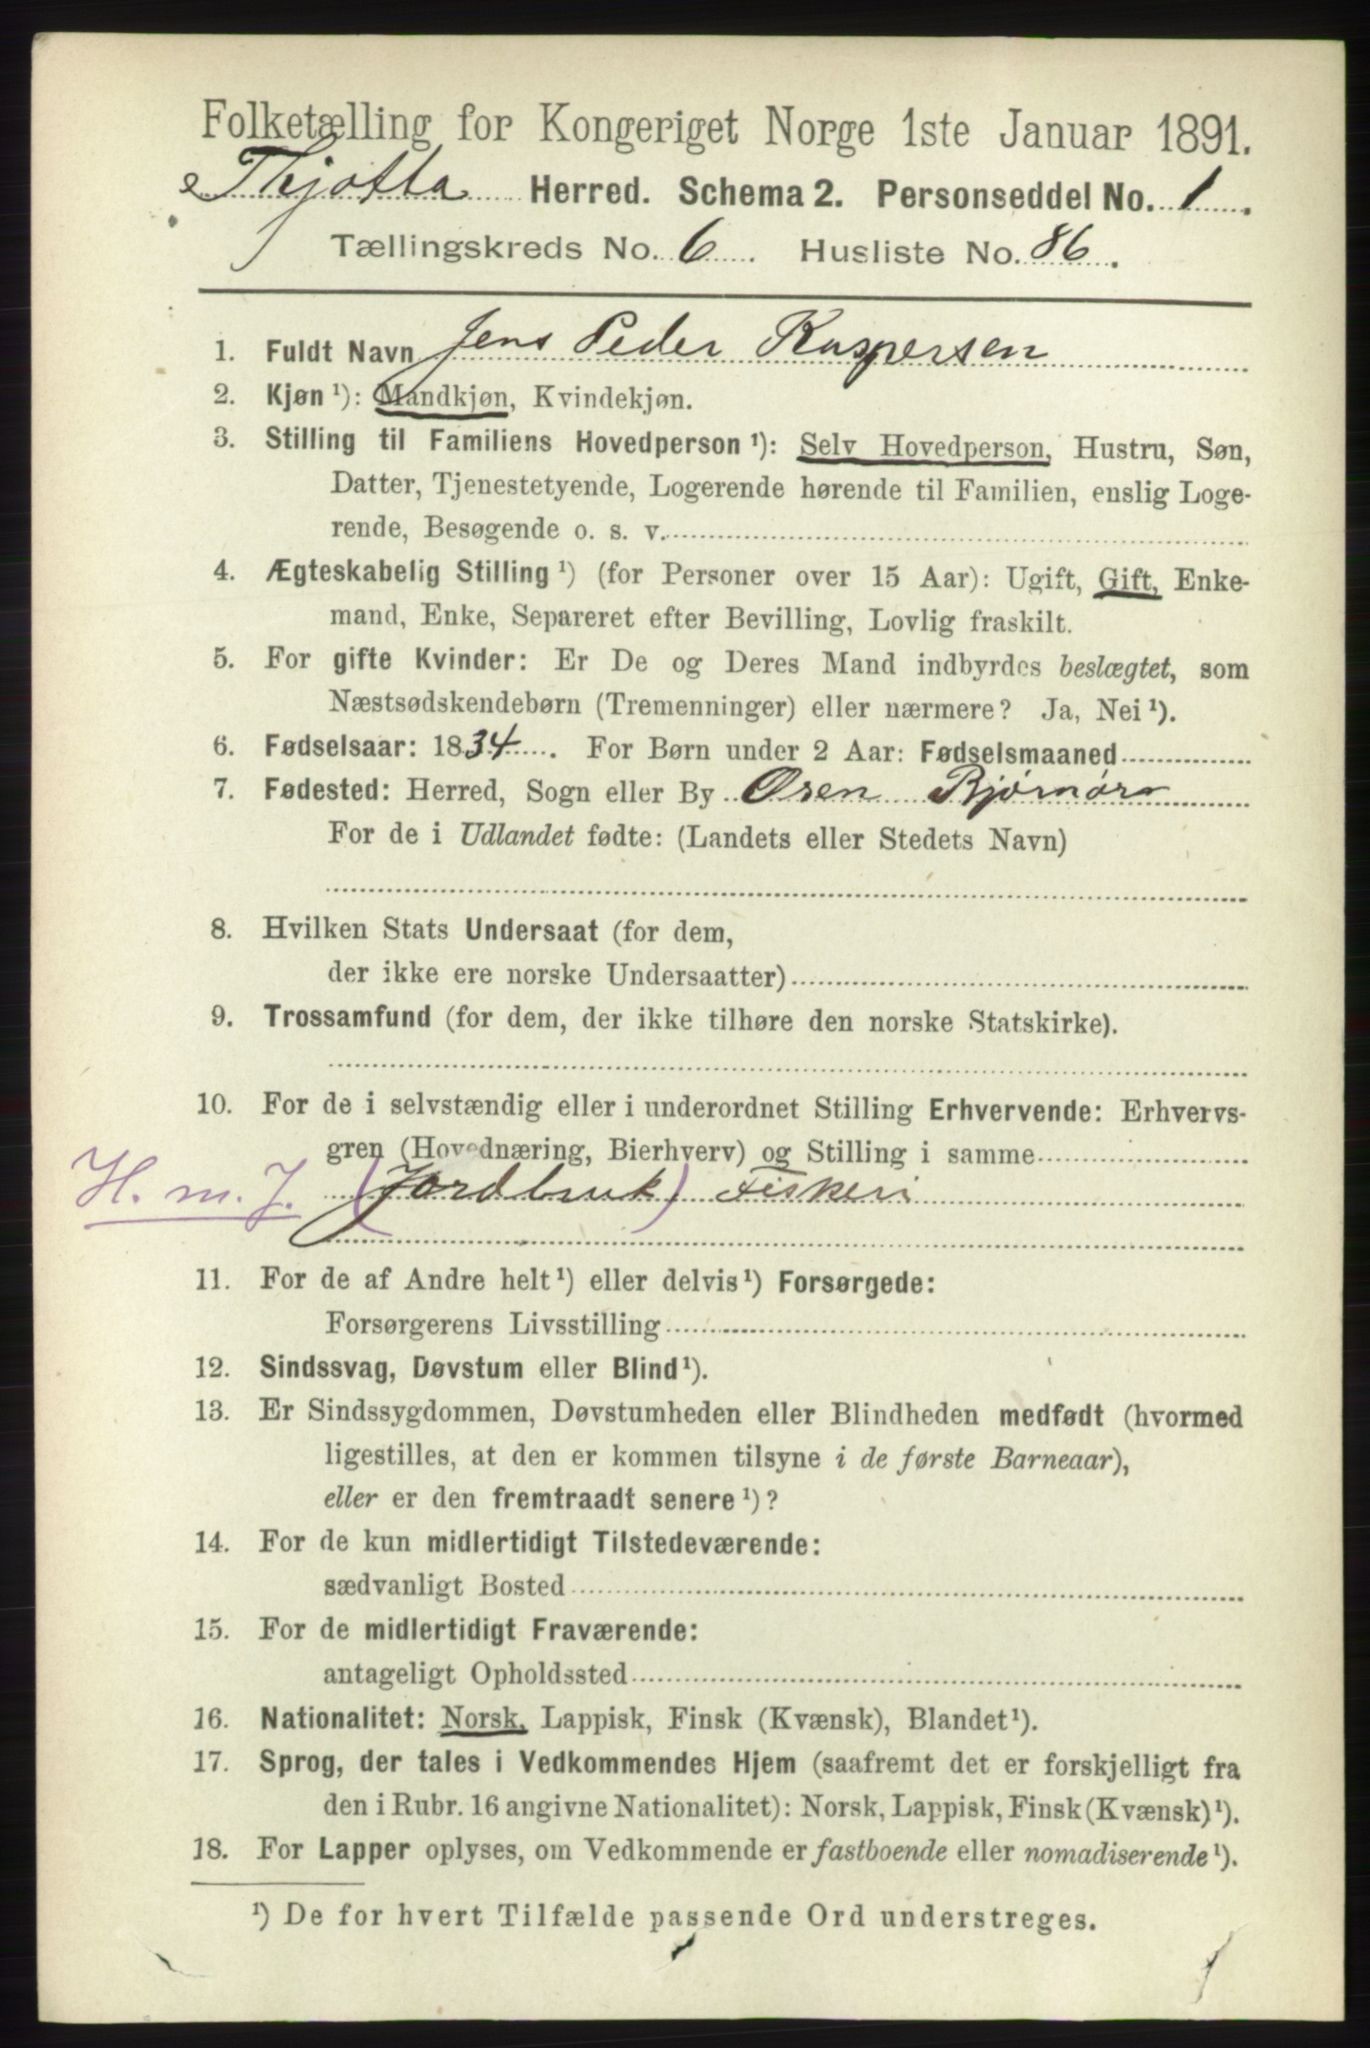 Folketælling for Kongeriget Norge 1ste Januar 1891.
Thjotta Herred. Schema 2. Personseddel No. 1.
Tællingskreds No. 6. Husliste No. 86.
1. Fuldt Navn Jens Peder Kaspersen
2. Kjøn ¹): Mandkjøn, Kvindekjøn.
3. Stilling til Familiens Hovedperson ¹): Selv Hovedperson, Hustru, Søn,
Datter, Tjenestetyende, Logerende hørende til Familien, enslig Loge-
rende, Besøgende o. s. v.
4. Ægteskabelig Stilling ¹) (for Personer over 15 Aar): Ugift, Gift, Enke-
mand, Enke, Separeret efter Bevilling, Lovlig fraskilt.
5. For gifte Kvinder: Er De og Deres Mand indbyrdes beslægtet, som
Næstsødskendebørn (Tremenninger) eller nærmere? Ja, Nei ¹).
6. Fødselsaar: 1834. For Børn under 2 Aar: Fødselsmaaned
7. Fødested: Herred, Sogn eller By Osen Bjørnør
For de i Udlandet fødte: (Landets eller Stedets Navn)
8. Hvilken Stats Undersaat (for dem,
der ikke ere norske Undersaatter)
9. Trossamfund (for dem, der ikke tilhøre den norske Statskirke).
10. For de i selvstændig eller i underordnet Stilling Erhvervende: Erhvervs-
gren (Hovednæring, Bierhverv) og Stilling i samme
H. m. J. (Jordbruk) Fiskeri
11. For de af Andre helt ¹) eller delvis ¹) Forsørgede:
Forsørgerens Livsstilling
12. Sindssvag, Døvstum eller Blind ¹).
13. Er Sindssygdommen, Døvstumheden eller Blindheden medfødt (hvormed
ligestilles, at den er kommen tilsyne i de første Barneaar),
eller er den fremtraadt senere ¹)?
14. For de kun midlertidigt Tilstedeværende:
sædvanligt Bosted
15. For de midlertidigt Fraværende:
antageligt Opholdssted
16. Nationalitet: Norsk, Lappisk, Finsk (Kvænsk), Blandet ¹).
17. Sprog, der tales i Vedkommendes Hjem (saafremt det er forskjelligt fra
den i Rubr. 16 angivne Nationalitet): Norsk, Lappisk, Finsk (Kvænsk) ¹).
18. For Lapper oplyses, om Vedkommende er fastboende eller nomadiserende ¹).
¹) De for hvert Tilfælde passende Ord understreges.